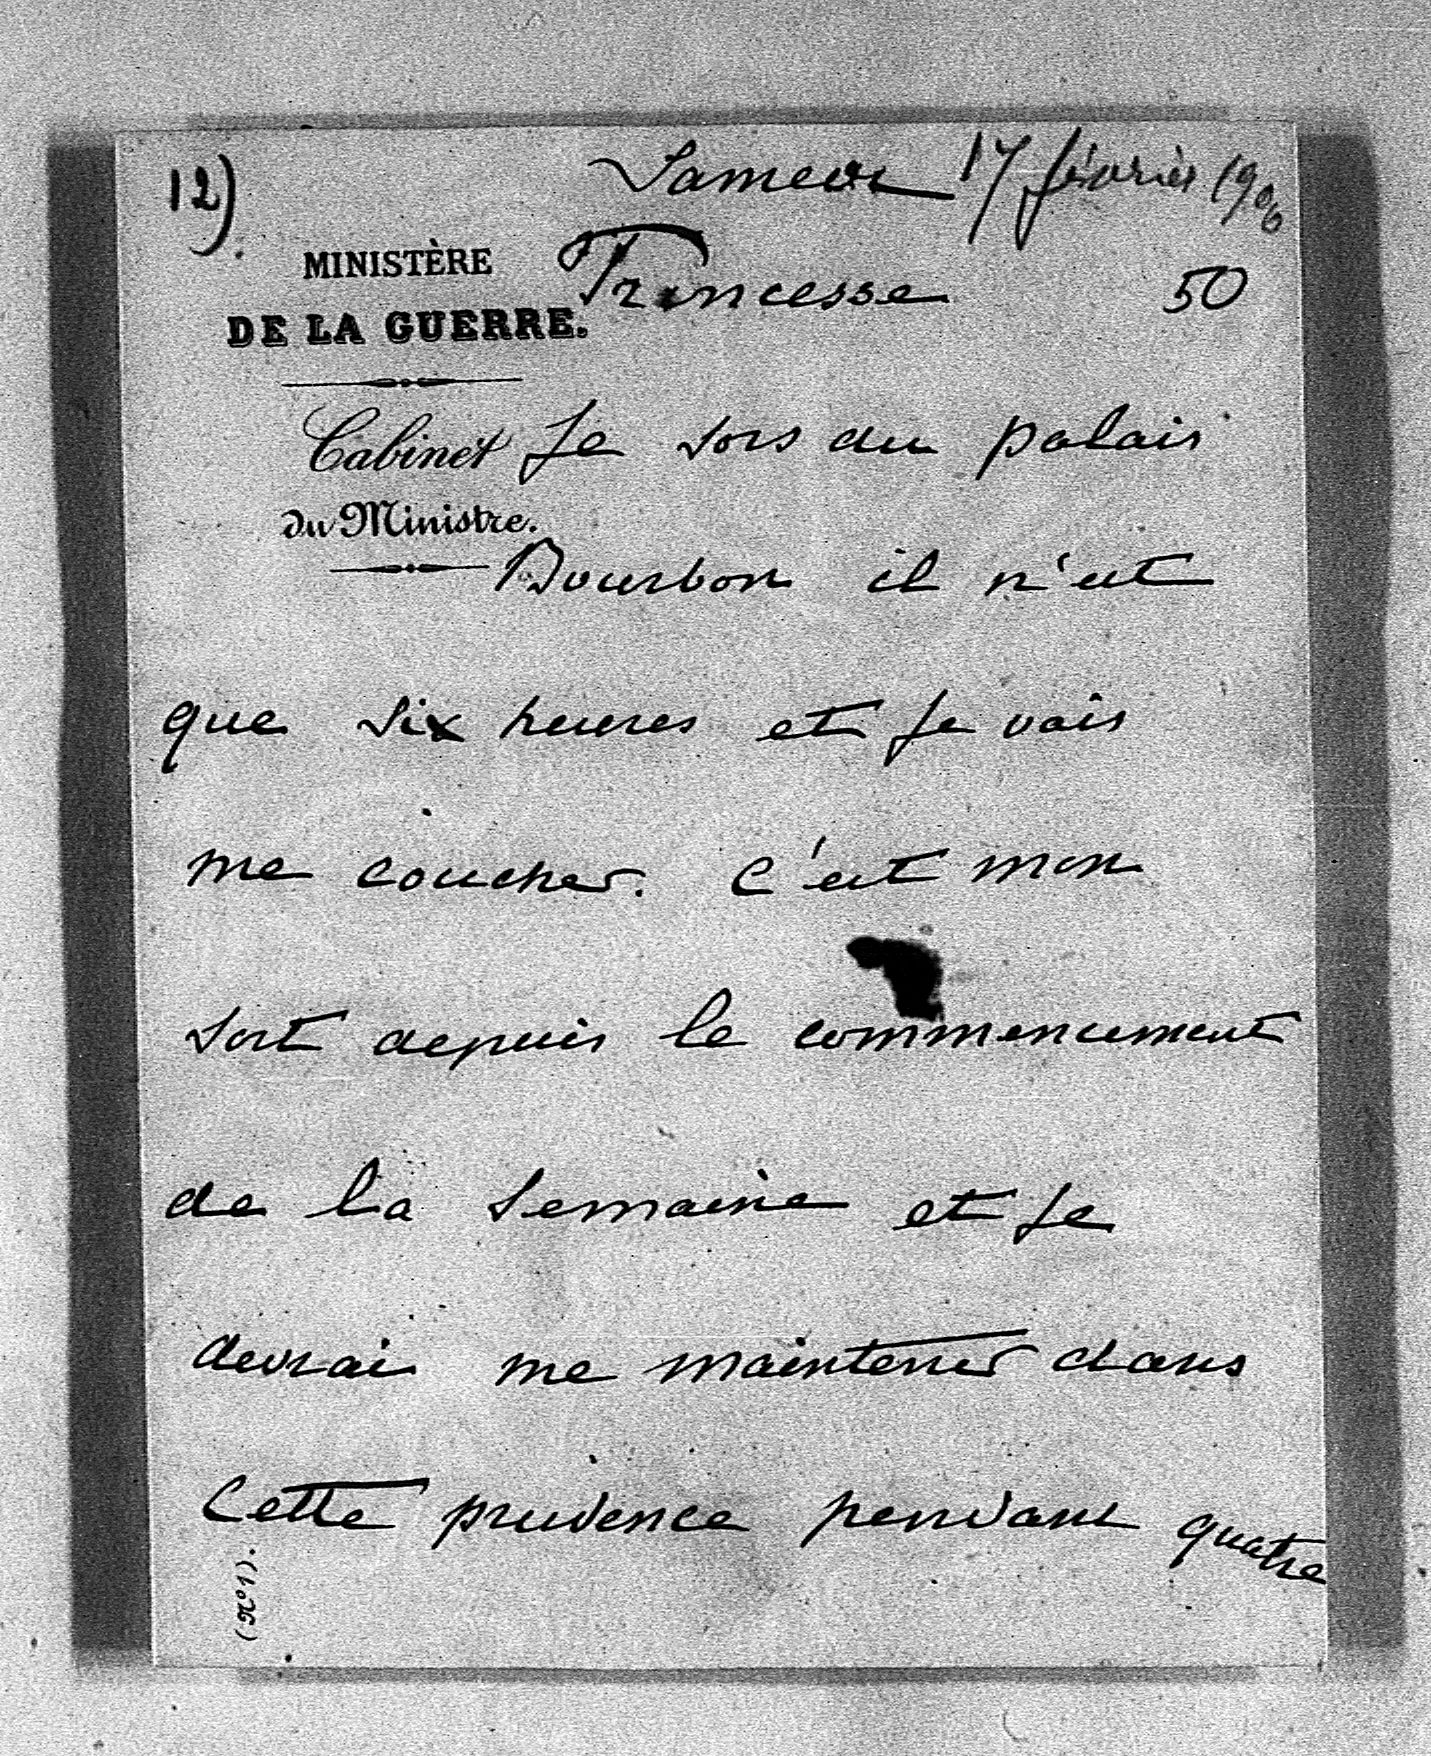 12).
Samedi 17 février 1906
MINISTÈRE
DE LA GUERRE.
Princesse
50
Cabinet
du Ministre.
Je sors du palais
Bourbon il n'est
que six heures et je vais
me coucher. C'est mon
sort depuis le commencement
de la semaine et je
devrai me maintenir dans
cette prudence pendant quatre
(No 1).